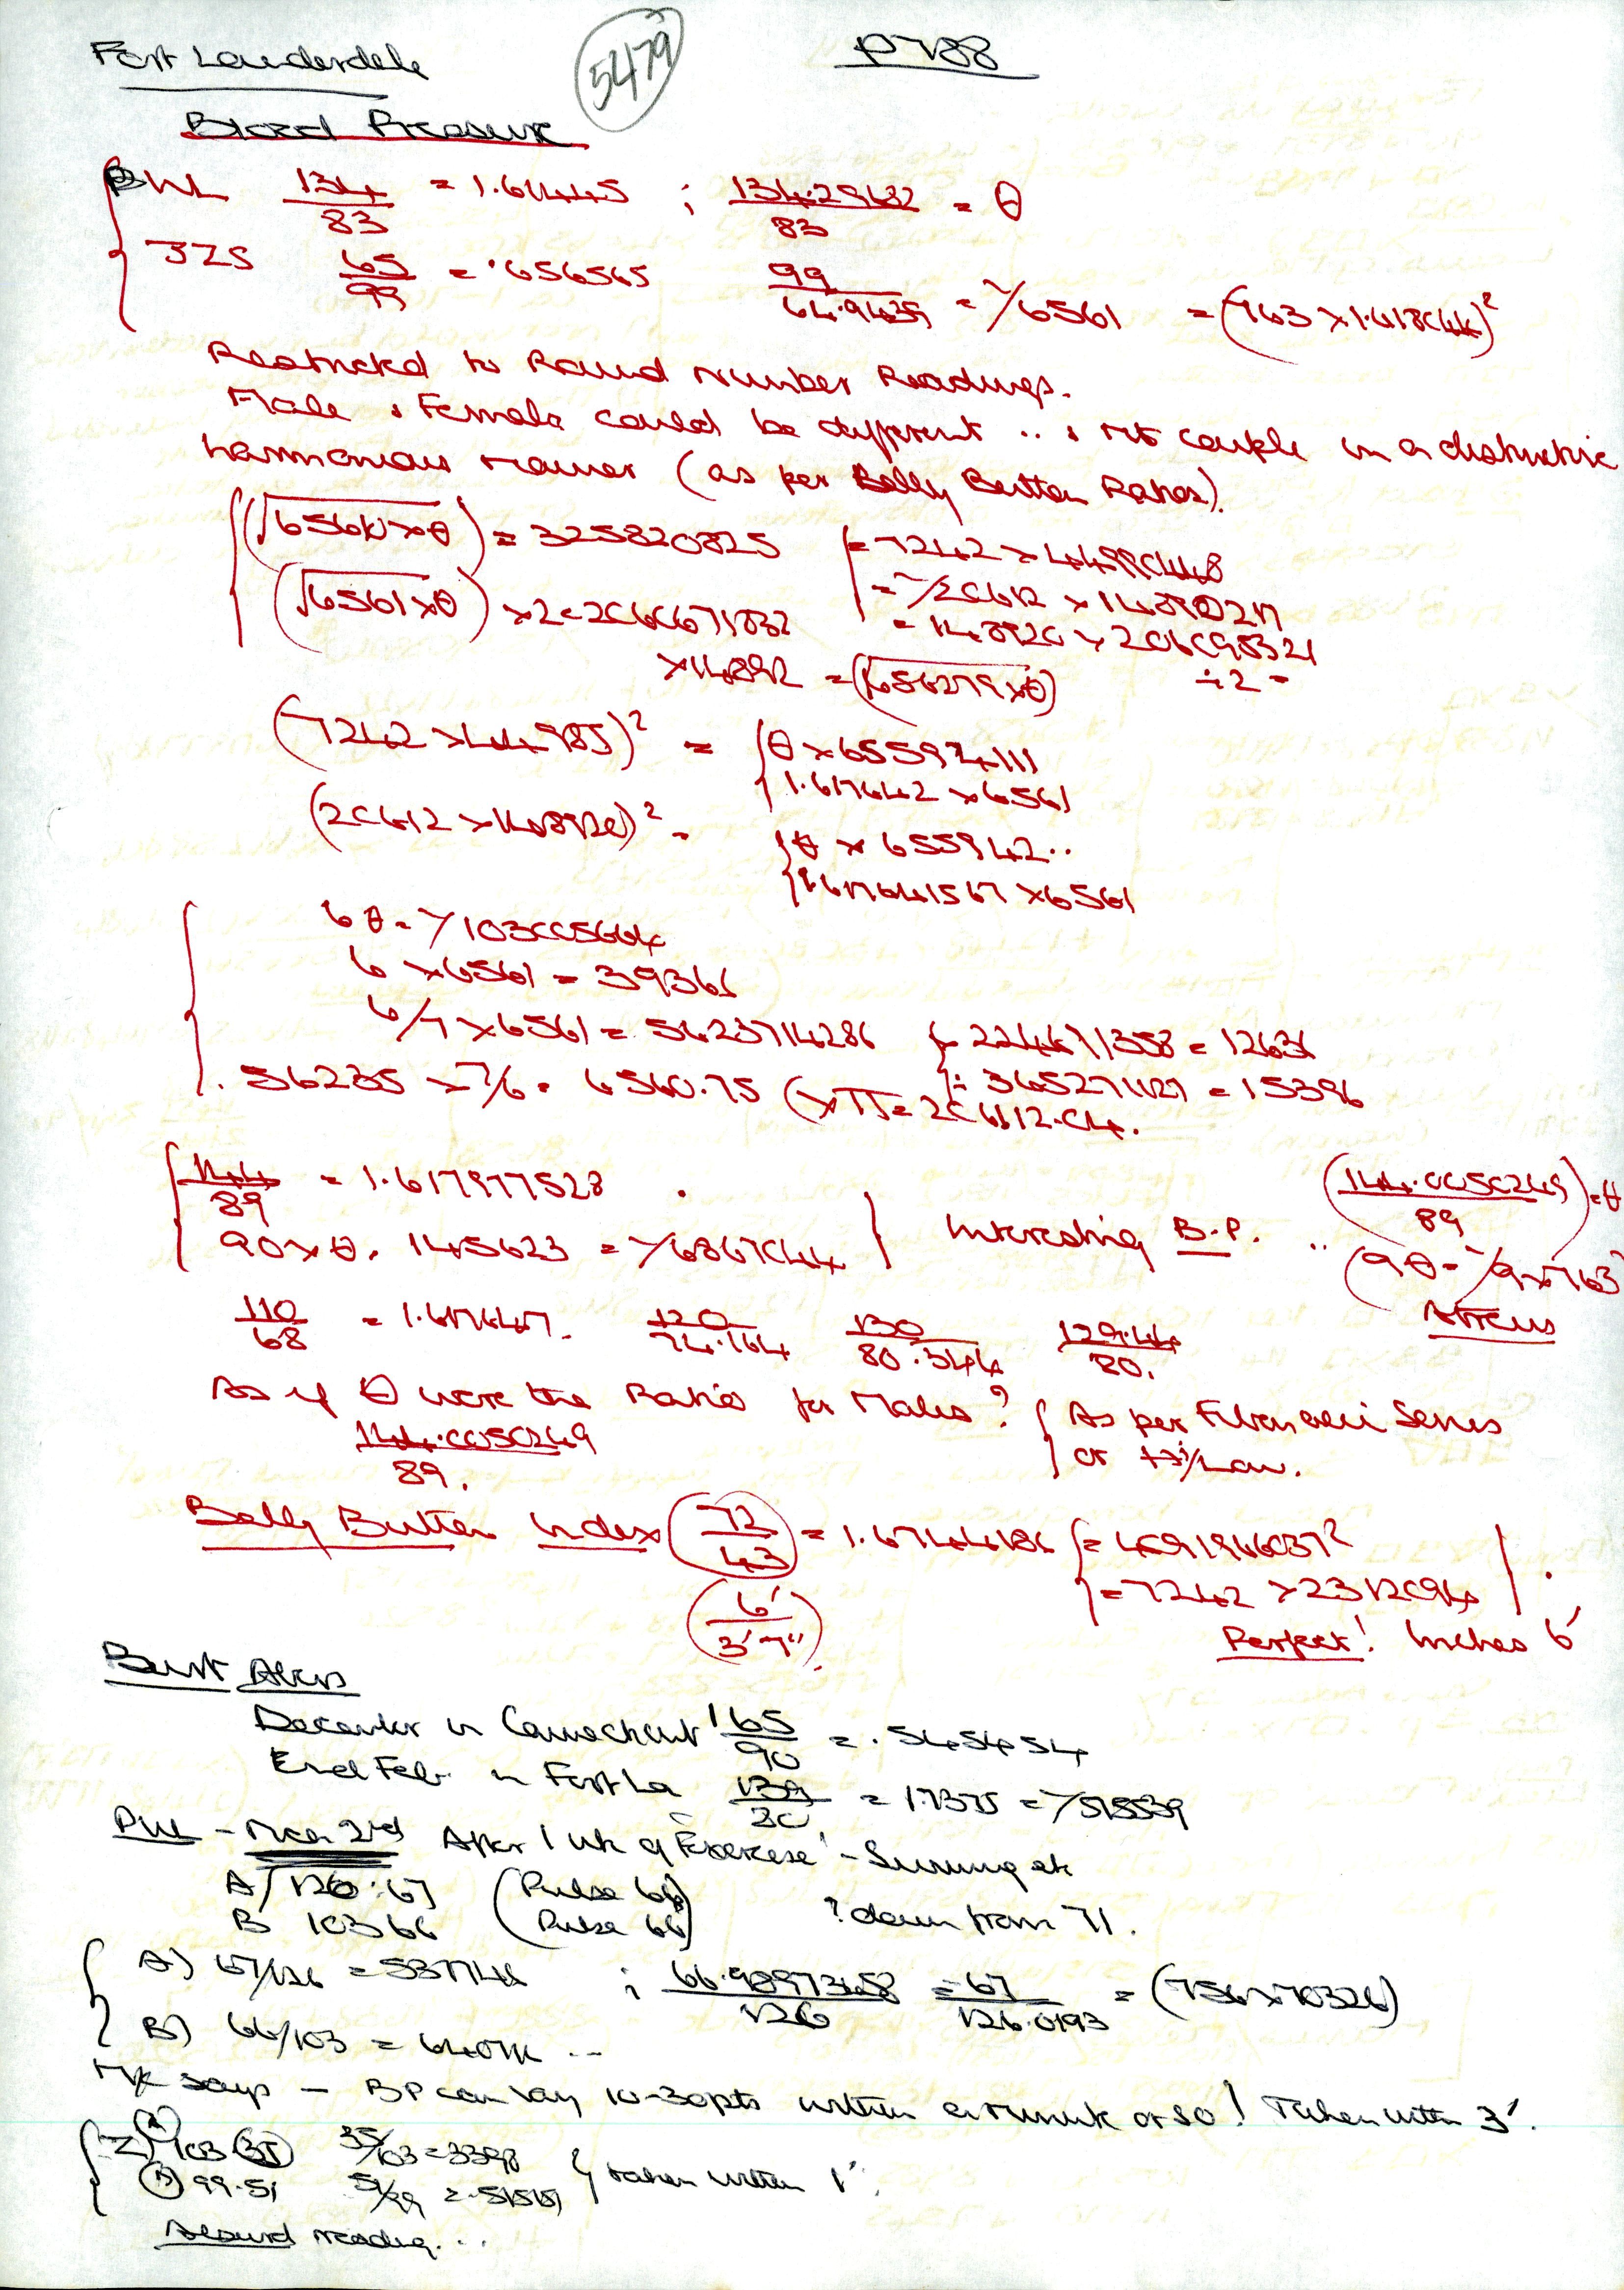 Fort Lauderdale
5479
P788
Blood Pressure
PWL 134/83 = 1.614445 ; 134.29682/83 = θ
JZS 65/99 = .656565 99/64.9439 = 1/6561 = (763 × 1.618044)²
Restricted to Round Number Readings.
Male & Female could be different .. & yet couple in a distinctive
harmonious manner (as per Belly Button Ratios).
(√6561 × θ) = 325820825 = 7242 × 44990448
(√6561 × θ) × 2 = 206
= 14892 × 2060
× 14892 = (√656279 × θ) ÷ 2 =
(7242 × 44985)² = θ × 65594111
1.617642 × 6561
(20612 × 14892)² = θ × 655942..
1.617641567 × 6561
6θ = 1/103005664
6 × 6561 = 39366
6/7 × 6561 = 5623714286 ÷ 224671358 = 12636
56235 × 7/6 = 6560.75 (× π = 20612.04. ÷ 365271127 = 15396
144/89 = 1.617977528 (144.0050249/89) = θ
90 × θ. 145623 = 1/6867044 Interesting B.P. .. (9θ = 1/9 × 763
110/68 = 1.617647. 120/74.164 130/80.344 129.44/80. Atreus
As if θ were the Ratio for Males? As per Fibonacci Series
or Law.
144.0050249/89.
Belly Button Index (72/43) = 1.6744186 = 4091946037²
= 7242 × 2312094
(6'/3'7") Perfect! Inches 6'
Burt
December in Connecticut 165/90 = .545454
End Feb. in Fort La 139/80 = 1.7375 = 1/57
PWL - Mar 2nd After 1 wk of Exercise! - Swimming etc
A/ 126.67 (Pulse 66)
B 103 66 (Pulse 66) ? down from 71.
A) 67/126 = 531746 ; 66.98973458/126 = 67/126.0193 = (756 × 70326)
B) 66/103 = 6407 ..
says - BP can vary 10-30 pts within a minute or so! Taken within 3'.
Z) (A) 103 (35) 35/103 = 3398
(B) 99.51 51/99 = .51515 } taken within 1'.
Absurd reading...